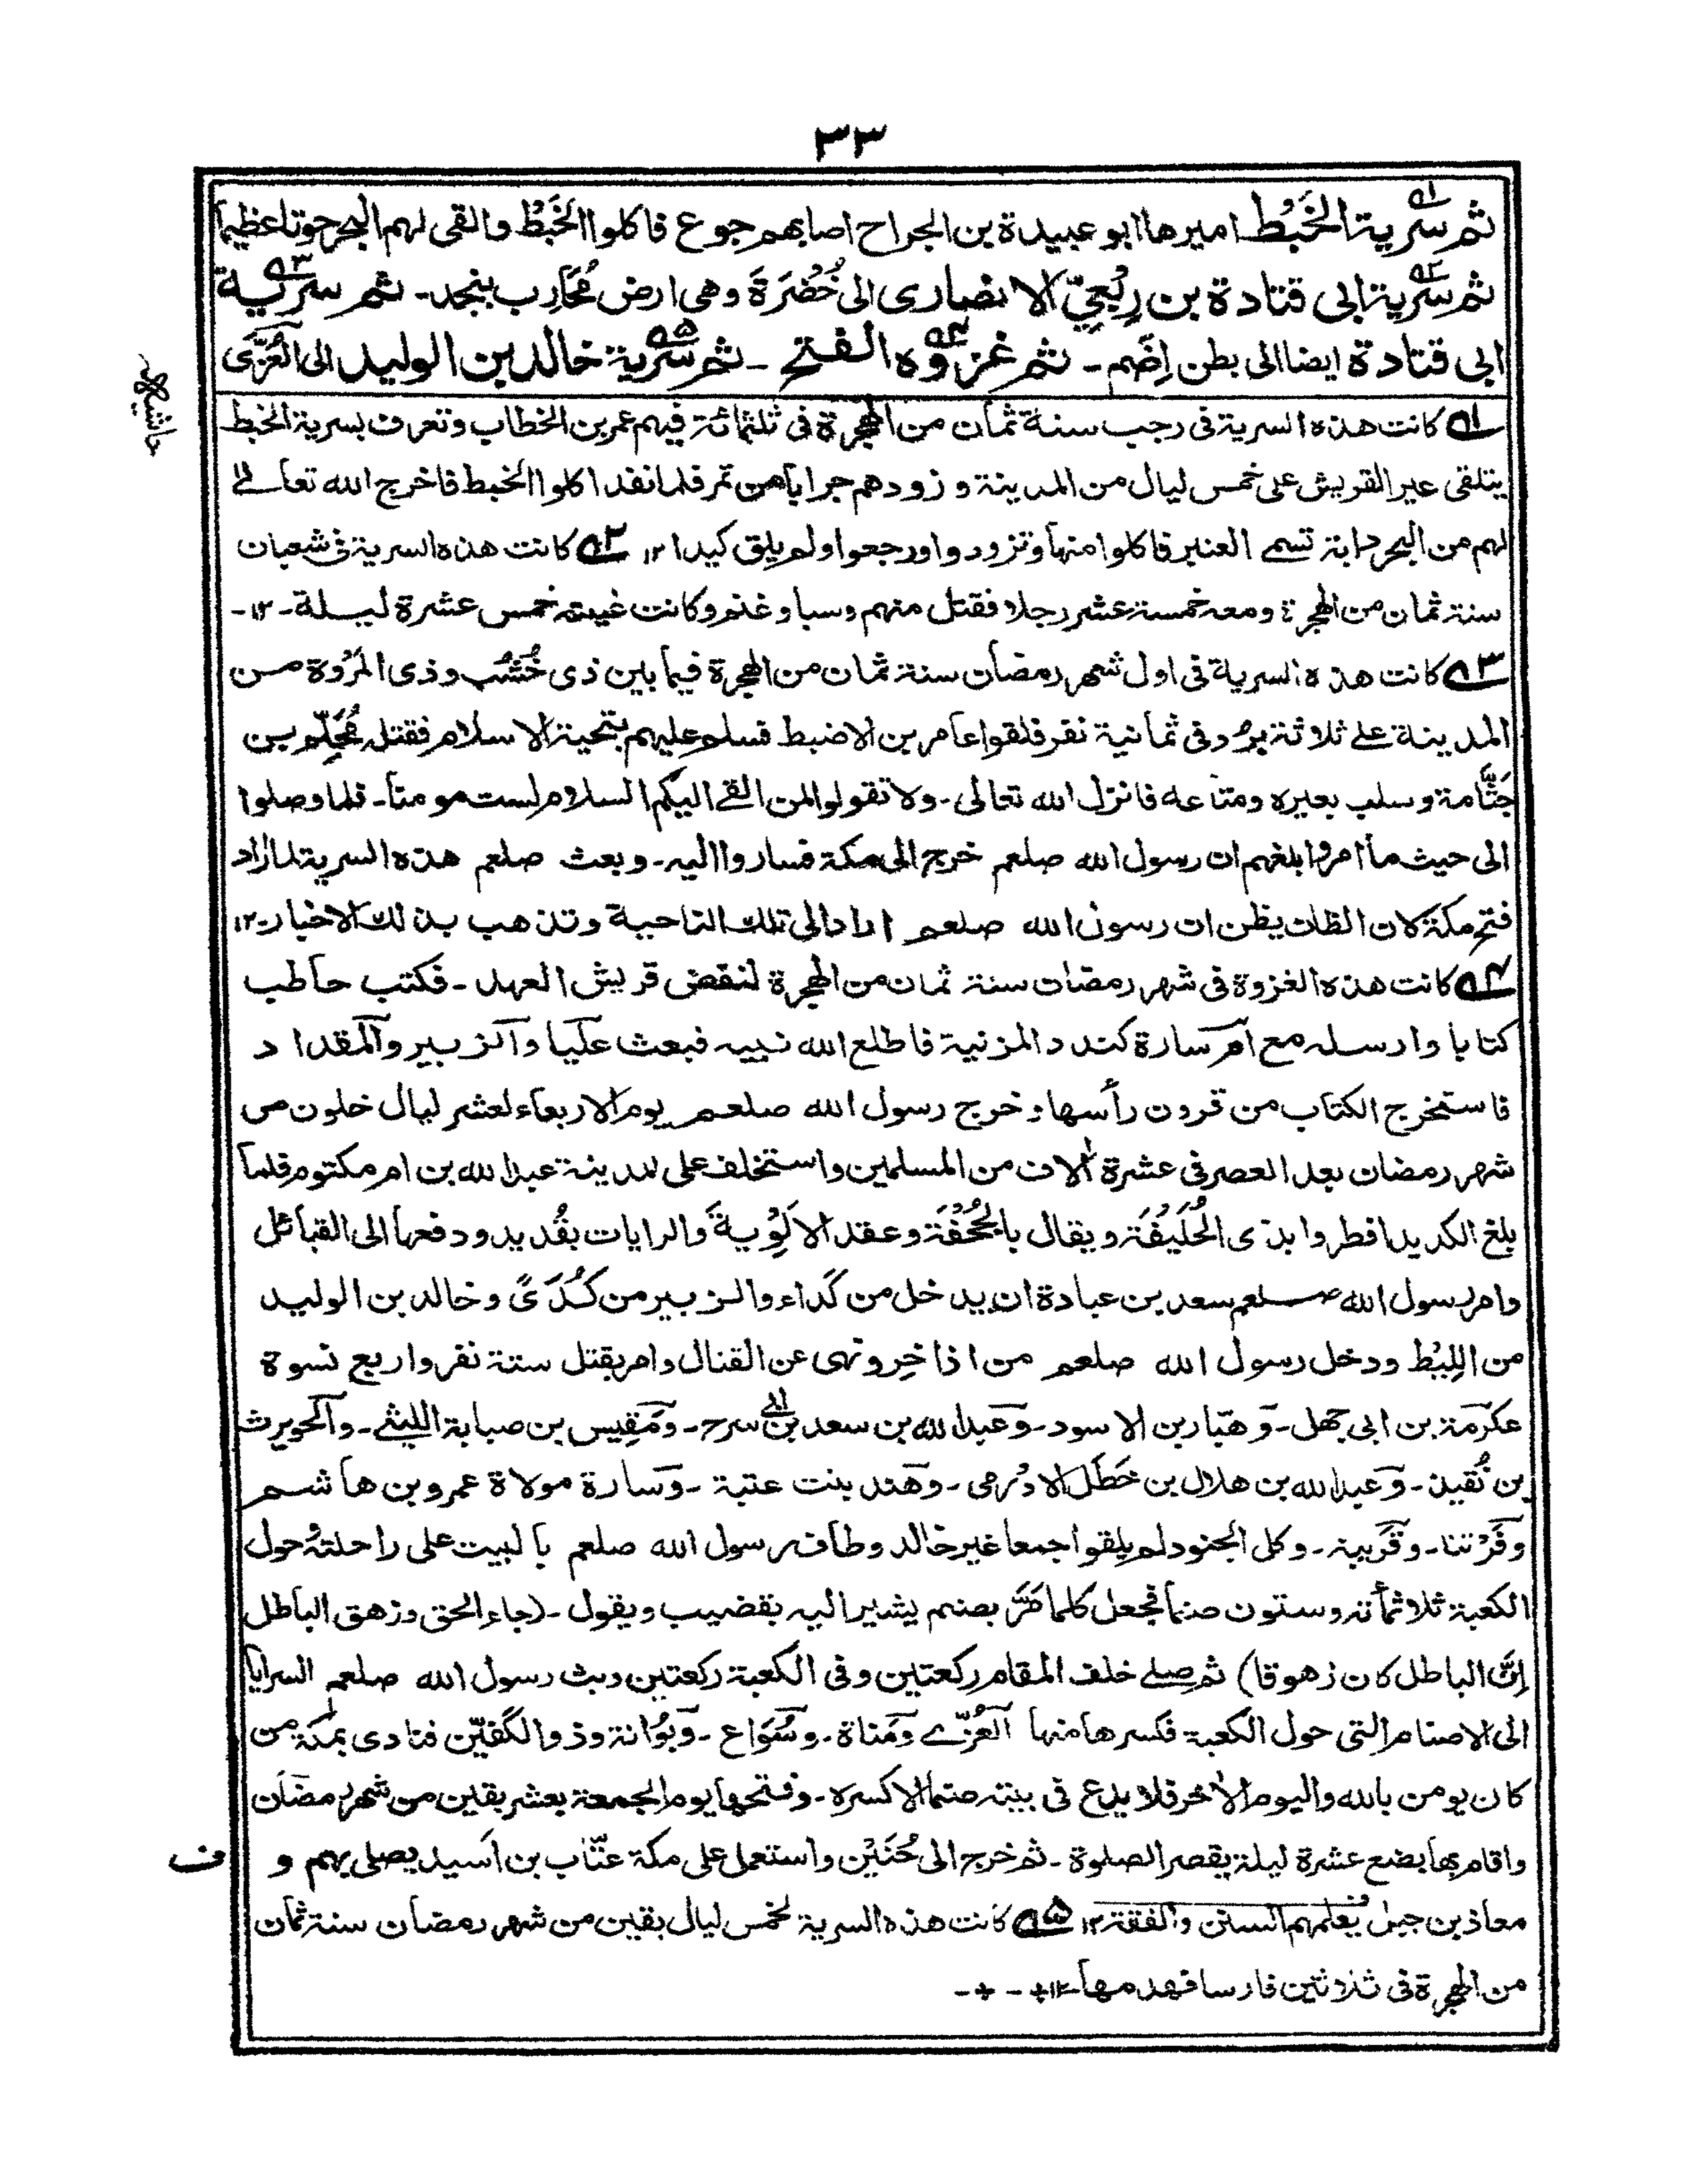 ٣٣
ثم سرية الخَبَط اميرها ابو عبيدة بن الجراح اصابهم جوع فاكلوا الخَبَط والقى لهم البحر حوتا عظيما
ثم سرية ابى قتادة بن رِبْعِيّ الانصارى الى خُضْرَة وهى ارض مُحَارِب بنجد۔ ثم سرية
ابى قتادة ايضا الى بطن اِضَم۔ ثم غزوة الفتح۔ ثم سرية خالد بن الوليد الى العُزّى
حاشیہ
لے۱ كانت هذه السرية فى رجب سنة ثمان من الهجرة فى ثلثمائة فيهم عمر بن الخطاب وتعرف بسرية الخبط
يتلقى عير القريش على خمس ليال من المدينة و زودهم جرابا من تمر فلما نفد اكلوا الخبط فاخرج الله تعالے
لهم من البحر دابة تسمے العنبر فاكلوا منها وتزودوا ورجعوا ولم يلق كيدا ١٢ لے۲ كانت هذه السرية فى شعبان
سنة ثمان من الهجرة ومعه خمسة عشر رجلا فقتل منهم وسبا وغنم وكانت غيبته خمس عشرة ليلة۔ ١٢۔
لے۳ كانت هذه السرية فى اول شهر رمضان سنة ثمان من الهجرة فيما بين ذى خُشُب وذى المَرْوة من
المدينة علے ثلاثة برُد فى ثمانية نفر فلقوا عامر بن الاضبط فسلم عليهم بتحية الاسلام فقتله مُحَلِّم بن
جَثَّامة وسلب بعيره ومتاعه فانزل الله تعالى۔ ولا تقولوا لمن القے اليكم السلام لست مومنا۔ فلما وصلوا
الى حيث ما أمروا بلغهم ان رسول الله صلعم خرج الى مكة فساروا اليه۔ وبعث صلعم هذه السرية لما اراد
فتح مكة لان الظان يظن ان رسول الله صلعم اراد الى تلك الناحية وتذهب بذلك الاخبار۔١٢
لے۴ كانت هذه الغزوة فى شهر رمضان سنة ثمان من الهجرة لنقض قريش العهد۔ فكتب حاطب
كتابا وارسله مع ام سارة كندد المزنية فاطلع الله نبيه فبعث عليا والزبير والمقداد
فاستخرج الكتاب من قرون رأسها وخرج رسول الله صلعم يوم الاربعاء لعشر ليال خلون من
شهر رمضان بعد العصر فى عشرة اٰلاف من المسلمين واستخلف على المدينة عبد الله بن ام مكتوم فلما
بلغ الكديد افطروا بذى الحُلَيْفَة ويقال بالجُحْفَة وعقد الالْوِية والرايات بقُديد ودفعها الى القبائل
وامر رسول الله صلعم سعد بن عبادة ان يدخل من كَداء والزبير من كُدًى وخالد بن الوليد
من اللِيْط ودخل رسول الله صلعم من اذاخِر ونهى عن القتال وامر بقتل ستة نفر واربع نسوة
عكرمة بن ابى جهل۔ و هبّار بن الاسود۔ وعبد الله بن سعد بن ابى سرح۔ ومَقِيس بن صبابة الليثى۔ والحويرث
بن نُقيذ۔ وعبد الله بن هلال بن خَطَل الادرمى۔ وهند بنت عتبة۔ وسارة مولاة عمرو بن هاشم
وفَرْتنا۔ وقريبة۔ وكل الجنود لم يلقوا جمعا غير خالد وطاف رسول الله صلعم بالبيت على راحلته وحول
الكعبة ثلاثمأئة وستون صنما فجعل كلما مَرَّ بصنم يشير اليه بقضيب ويقول۔ (جاء الحق وزهق الباطل
اِنَّ الباطل كان زهوقا) ثم صلے خلف المقام ركعتين وفى الكعبة ركعتين وبث رسول الله صلعم السرايا
الى الاصنام التى حول الكعبة فكسرها منها العُزّے ومَناة۔ وسُوَاع۔ وبُوَانة وذوالكَفّين فنادى بمكة من
كان يومن بالله واليوم الاٰخر فلا يدع فى بيته صنما الا كسره۔ وفتحها يوم الجمعة بعشر بقين من شهر رمضان
واقام بها بضع عشرة ليلة يقصر الصلوة۔ ثم خرج الى حُنَيْن واستعمل على مكة عتّاب بن اَسيد يصلى بهم و
ف
معاذ بن جبل يعلمهم السنن والفقة ١٢ لے۵ كانت هذه السرية لخمس ليال بقين من شهر رمضان سنة ثمان
من الهجرة فى ثلاثين فارسا فهدمها ١٢